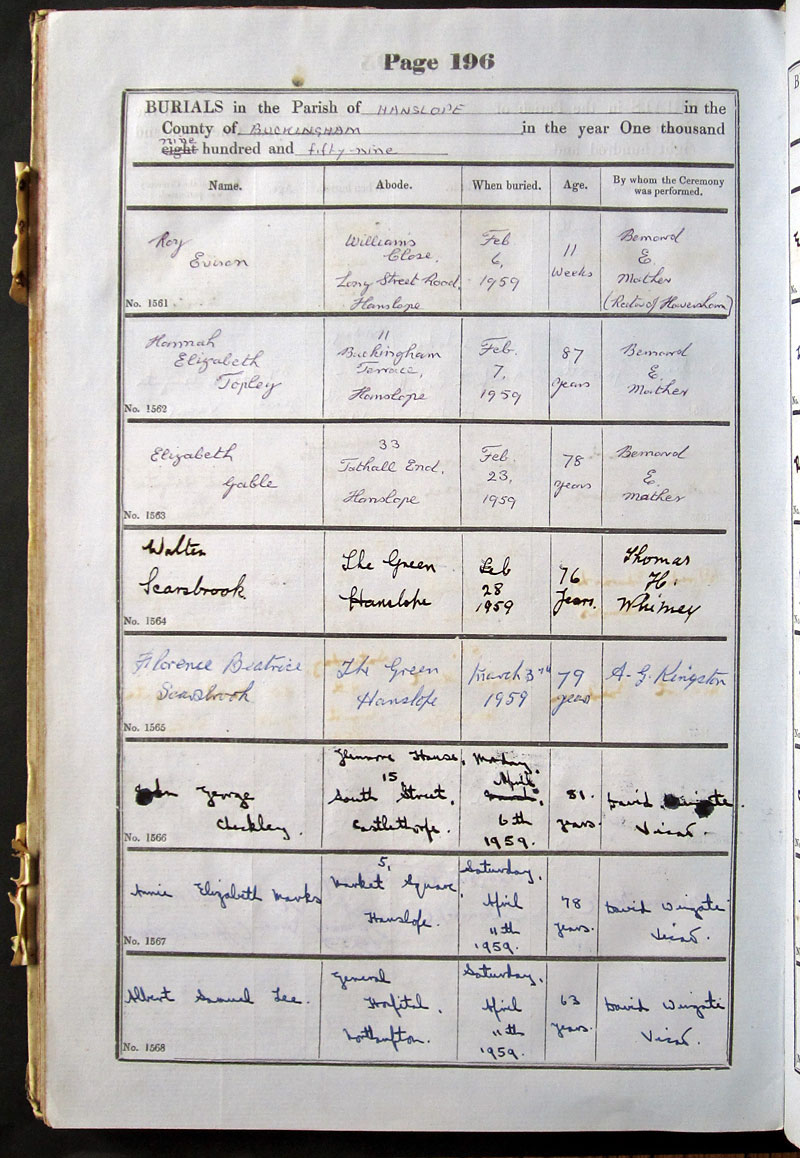 Page 196
BURIALS in the Parish of HANSLOPE in the
County of BUCKINGHAM in the year One thousand
nine
eight hundred and fifty-nine
Name. Abode. When buried. Age. By whom the Ceremony was performed.
Roy
Evison
No. 1561
Williams
Close,
Long Street Road,
Hanslope
Feb
6,
1959
11
weeks
Bernard
E.
Mather
(Rector of Haversham)
Hannah
Elizabeth
Topley
No. 1562
11
Buckingham
Terrace,
Hanslope
Feb.
7,
1959
87
years
Bernard
E.
Mather
Elizabeth
Gable
No. 1563
33
Tathall End,
Hanslope
Feb.
23,
1959
78
years
Bernard
E.
Mather
Walter
Scarsbrook
No. 1564
The Green
Hanslope
Feb
28
1959
76
Years.
Thomas
H.
Florence Beatrice
Scarsbrook
No. 1565
The Green
Hanslope
March 3rd
1959
79
years
A. G. Kingston
John George
Checkley.
No. 1566
Glenmore House,
15
South Street,
Castlethorpe.
Monday,
April
6th
1959.
81.
years.
David Wingate.
Vicar.
Annie Elizabeth Marks
No. 1567
5,
Market Square,
Hanslope.
Saturday,
April
11th
1959.
78
years.
David Wingate
Vicar.
Albert Samuel Lee.
No. 1568
General
Hospital,
Northampton.
Saturday,
April
11th
1959.
63
years.
David Wingate
Vicar.